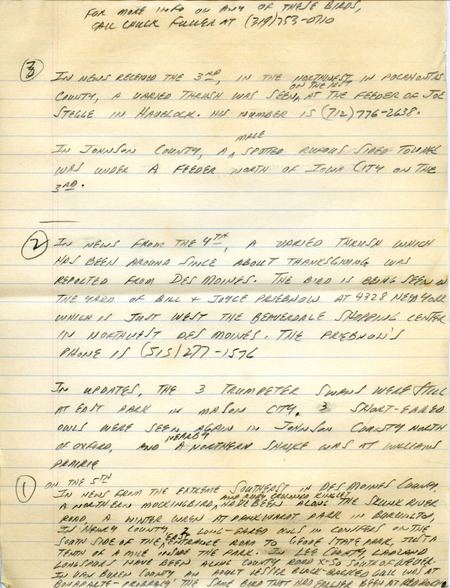 FOR MORE INFO ON ANY OF THESE BIRDS,
CALL CHUCK FULLER AT (319) 753-0710
③ IN NEWS RECEIVED THE 3RD, IN THE NORTHWEST IN POCAHONTAS
COUNTY, A VARIED THRUSH WAS SEEN ON THE 1ST AT THE FEEDER OF JOE
STELLE IN HAVELOCK. HIS NUMBER IS (712) 776-2638.
IN JOHNSON COUNTY, A MALE SPOTTED RUFOUS SIDED TOWHEE
WAS UNDER A FEEDER NORTH OF IOWA CITY ON THE
3RD.
② IN NEWS FROM THE 4TH, A VARIED THRUSH WHICH
HAS BEEN AROUND SINCE ABOUT THANKSGIVING WAS
REPORTED FROM DES MOINES. THE BIRD IS BEING SEEN IN
THE YARD OF BILL + JOYCE PRIEBNOW AT 4328 NEW YORK
WHICH IS JUST WEST THE BEAVERDALE SHOPPING CENTER
IN NORTHWEST DES MOINES. THE PRIEBNOW'S
PHONE IS (515) 277-1576
IN UPDATES, THE 3 TRUMPETER SWANS WERE STILL
AT EAST PARK IN MASON CITY. 3 SHORT-EARED
OWLS WERE SEEN AGAIN IN JOHNSON COUNTY NORTH
OF OXFORD, AND NEARBY A NORTHERN SHRIKE WAS AT WILLIAMS
PRAIRIE
① ON THE 5TH
IN NEWS FROM THE EXTREME SOUTHEAST IN DES MOINES COUNTY,
A NORTHERN MOCKINGBIRD AND RUBY CROWNED KINGLET HAVE BEEN ALONG THE SKUNK RIVER
ROAD A WINTER WREN AT PARK IN BURLINGTON,
IN HENRY COUNTY LONG-EARED OWLS IN CONIFERS ON THE
SOUTH SIDE OF THE ENTRANCE ROAD TO GEODE STATE PARK, JUST A
TENTH OF A MILE INSIDE THE PARK. IN LEE COUNTY, LAPLAND
LONGSPURS HAVE BEEN ALONG COUNTY ROAD SOUTH OF
IN VAN BUREN COUNTY AN ADULT LESSER BLACK-BACKED GULL WAS AT
BONAPARTE - PROBABLY THE SAME BIRD THAT HAD EARLIER BEEN AT RED ROCK